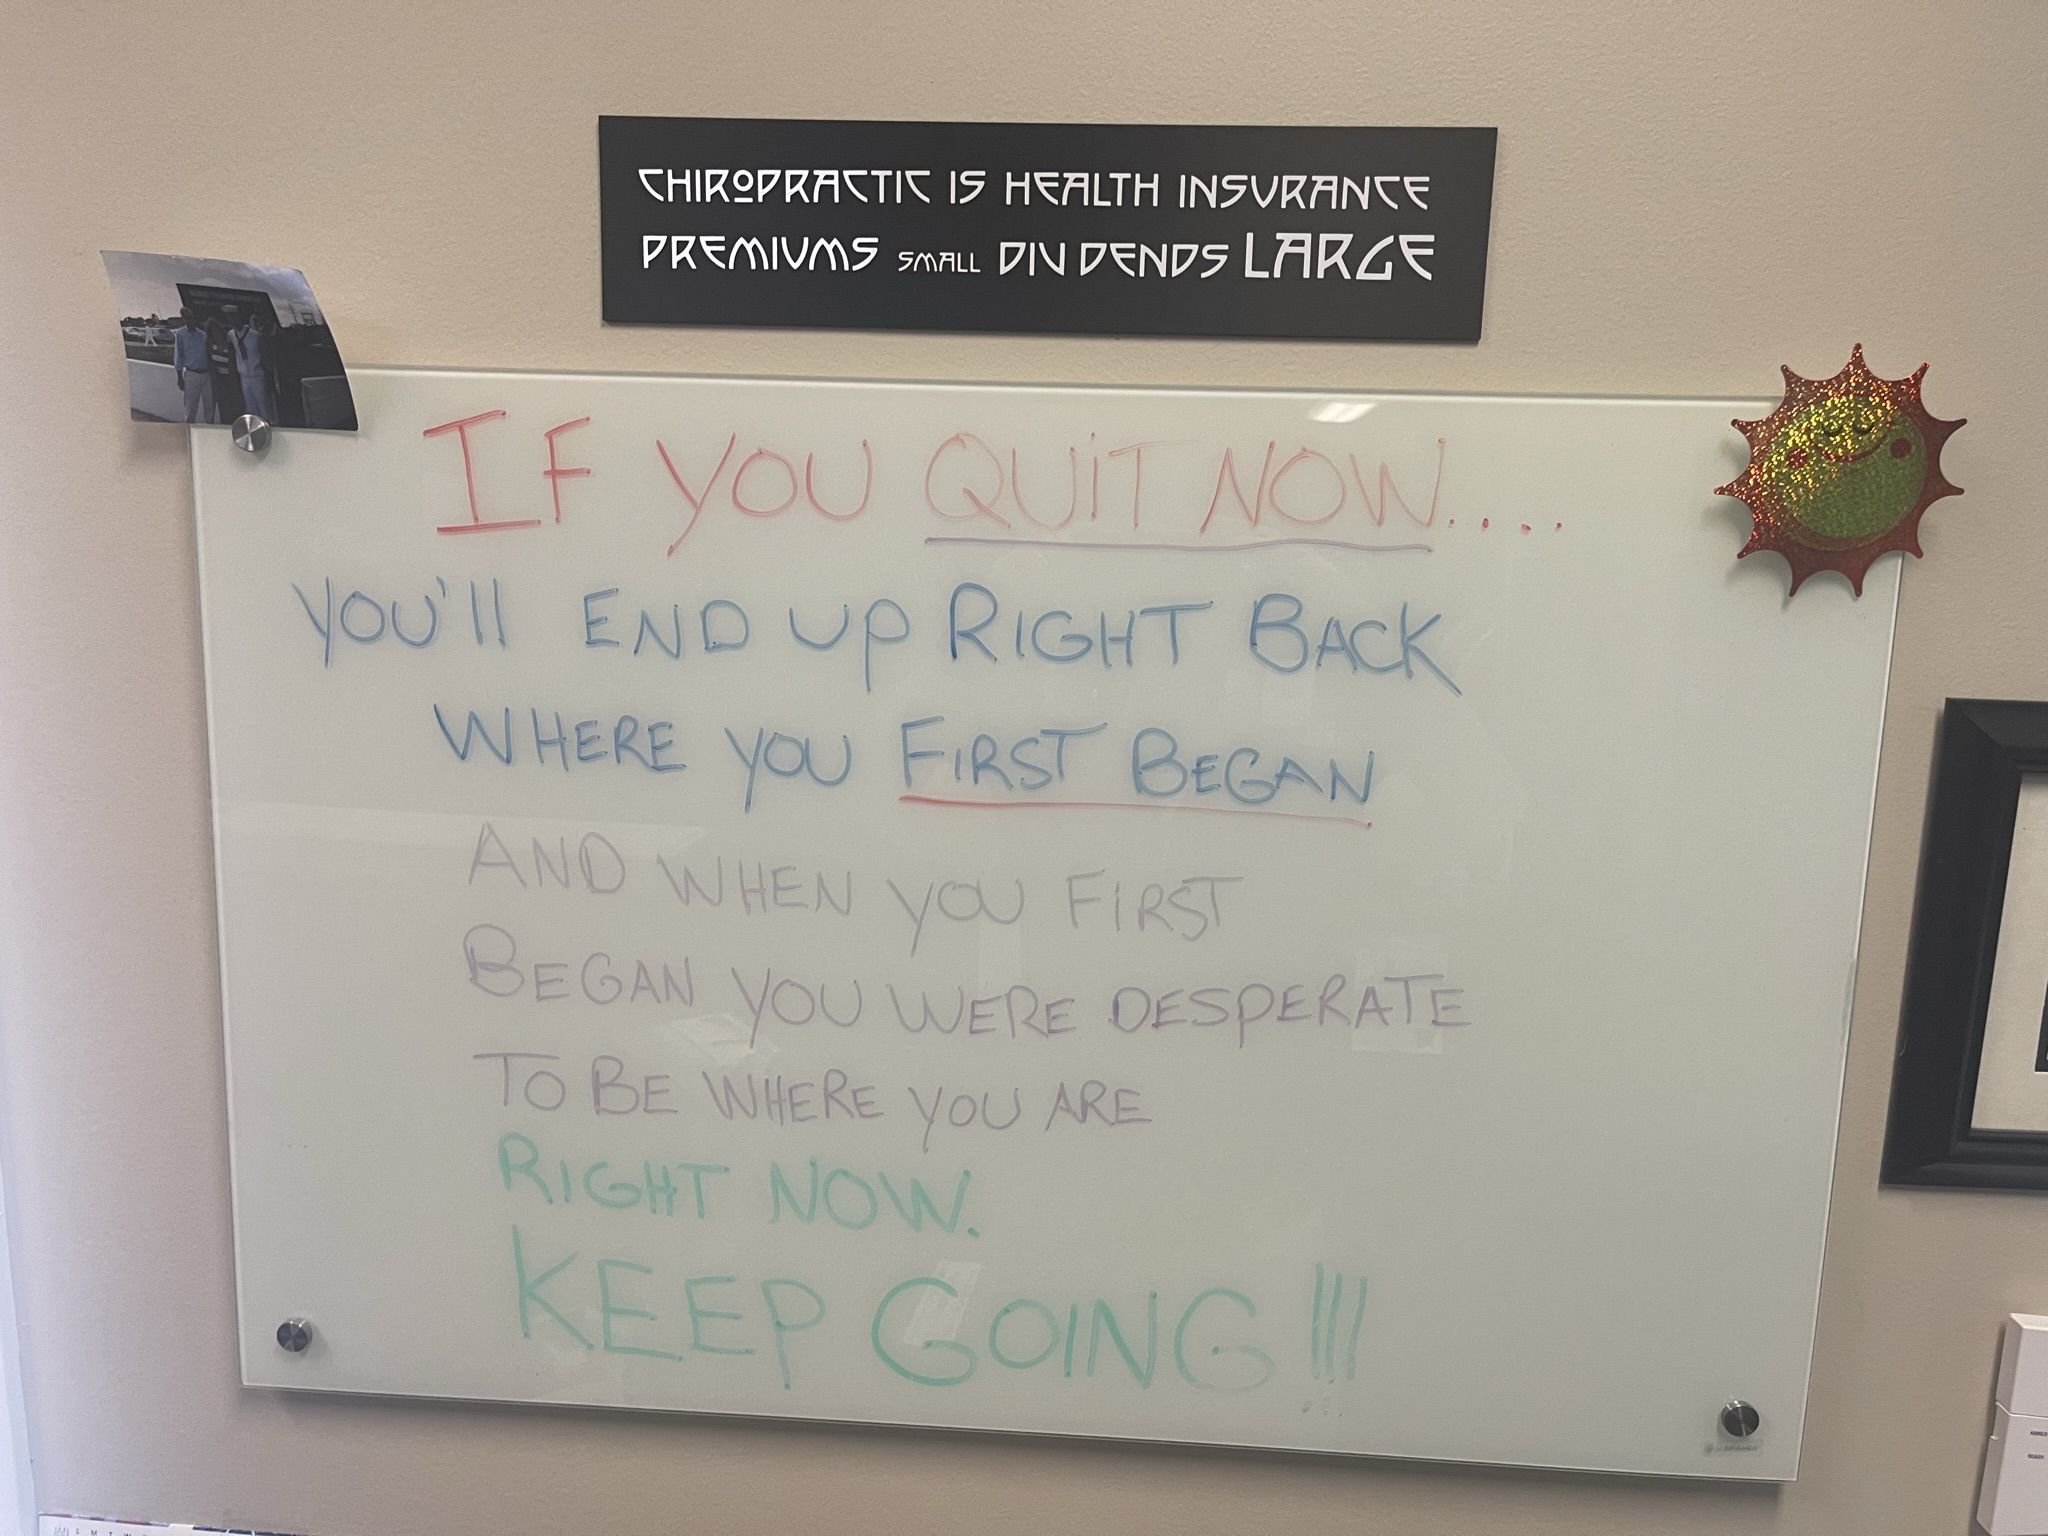 CHIROPRACTIC IS HEALTH INSURANCE
PREMIUMS SMALL DIV DENDS LARGE
IF YOU QUIT NOW....
YOU'll END UP RIGHT BACK
WHERE YOU FIRST BEGAN
AND WHEN YOU FIRST
BEGAN YOU WERE DESPERATE
TO BE WHERE YOU ARE
RIGHT NOW.
KEEP GOING!!!